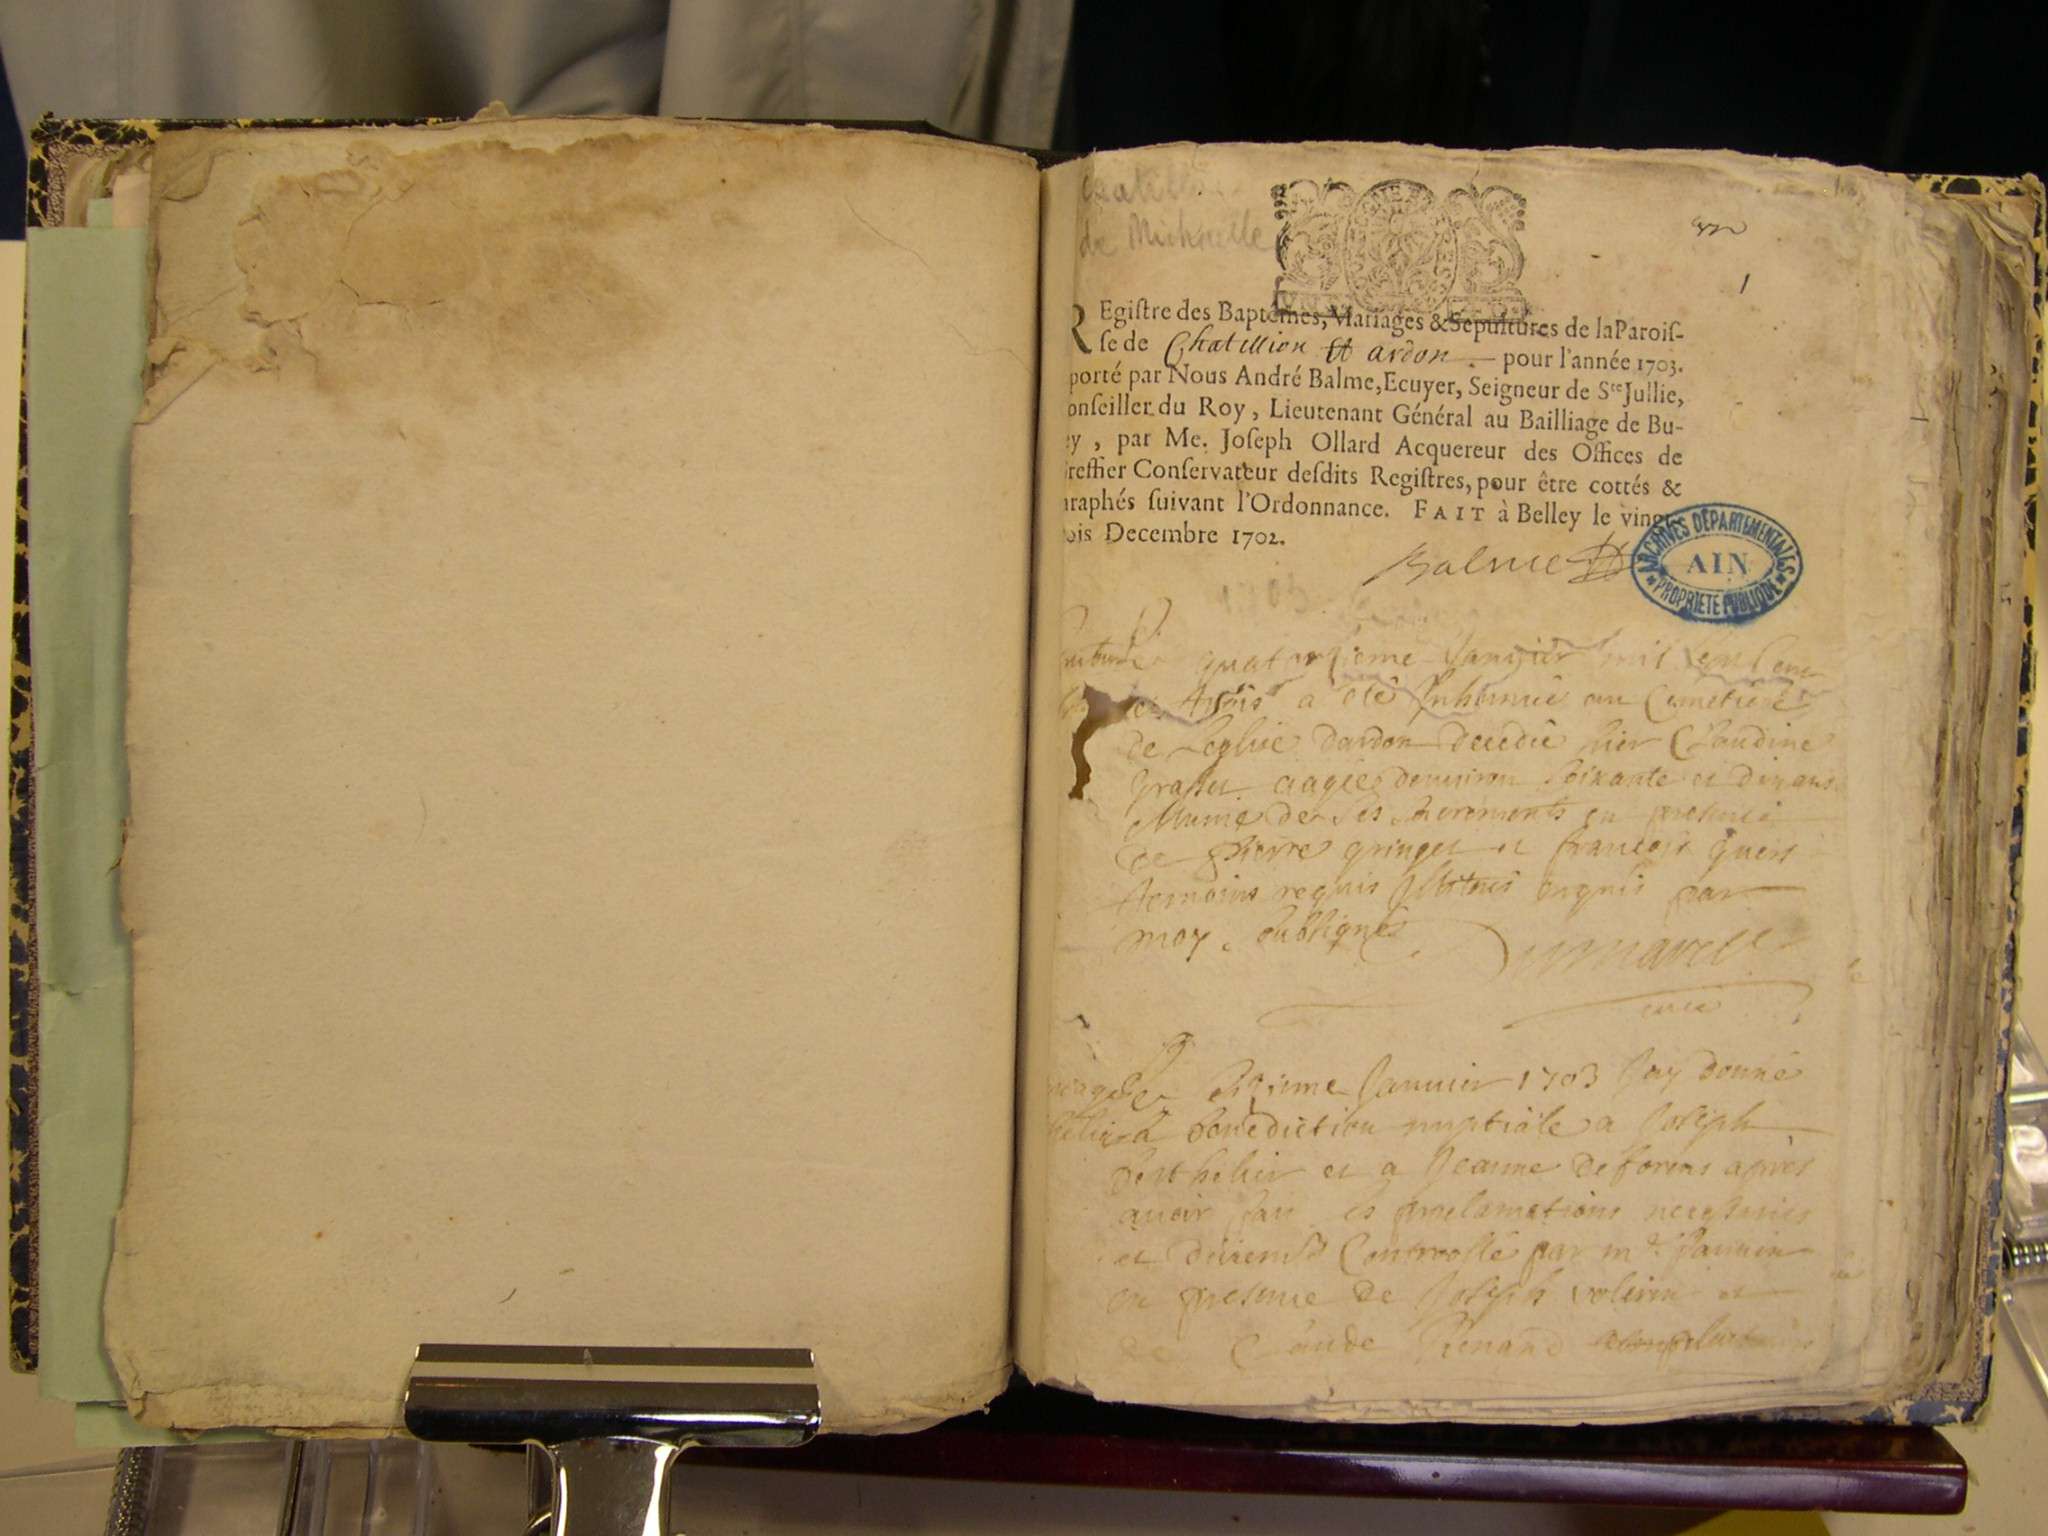 de Michaille
1
REgiſtre des Baptémes, Mariages & Sepultures de la Paroiſ-
ſe de Chatillion et ardon pour l'année 1703.
porté par Nous André Balme, Ecuyer, Seigneur de Ste Jullie,
onſeiller du Roy, Lieutenant Général au Bailliage de Bu-
ey, par Me. Joſeph Ollard Acquereur des Offices de
reffier Conſervateur deſdits Regiſtres, pour être cottés &
araphés ſuivant l'Ordonnance. FAIT à Belley le vingt
ois Decembre 1702.
Balme
ARCHIVES DÉPARTEMENTALES
AIN
PROPRIÉTÉ PUBLIQUE
1703
quatorzieme Janvier mil sept cent
trois a été Inhumée au Cimetiere
de Leglise dardon decedée hier Claudine
aagée denuiron soixante et dix ans
Munie de ses sacrements en presence
de pierre gringet et francois
temoins requis Illitrés enquis par
moy soubsigné
curé
Janvier 1703 Jay donné
la benediction nuptiale a Joseph
berthelier et a Jeanne de forens apres
auoir fait les proclamations necessaires
et duement Controllé par me
en presence de Joseph et
de Claude